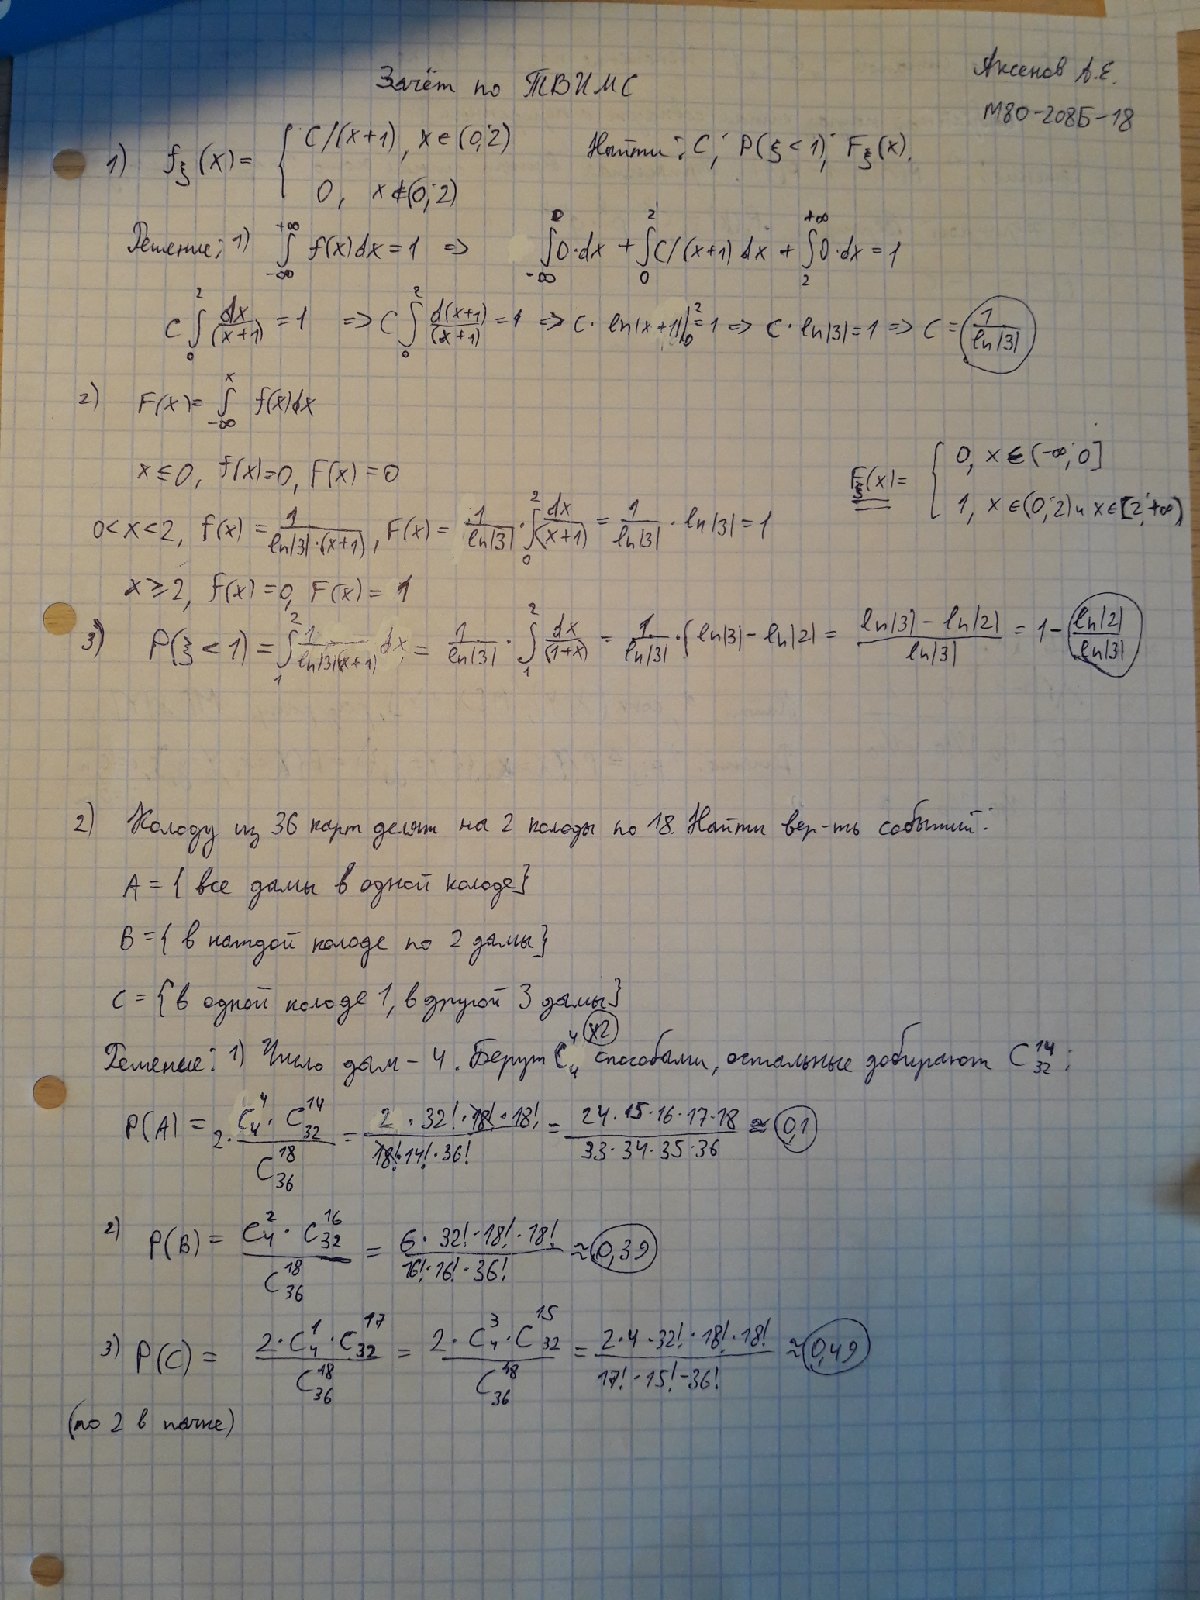 Зачёт по ТВИМС
Аксенов А.Е.
М80-208Б-18
1) fξ(x) = { C/(x+1), x∈(0;2)
0, x∉(0;2)
Найти: C; P(ξ<1); Fξ(x).
Решение: 1) ∫_{-∞}^{+∞} f(x)dx = 1 => ∫_{-∞}^{0} 0·dx + ∫_{0}^{2} C/(x+1) dx + ∫_{2}^{+∞} 0·dx = 1
C ∫_{0}^{2} dx/(x+1) = 1 => C ∫_{0}^{2} d(x+1)/(x+1) = 1 => C · ln|x+1||_{0}^{2} = 1 => C · ln|3| = 1 => C = 1/ln|3|
2) F(x) = ∫_{-∞}^{x} f(x)dx
x ≤ 0, f(x)=0, F(x) = 0
0<x<2, f(x) = 1/(ln|3|·(x+1)), F(x) = 1/ln|3| · ∫_{0}^{2} dx/(x+1) = 1/ln|3| · ln|3| = 1
x ≥ 2, f(x) = 0, F(x) = 1
Fξ(x) = { 0, x∈(-∞;0]
1, x∈(0;2) и x∈[2;+∞)
3) P(ξ<1) = ∫_{1}^{2} 1/(ln|3|(x+1)) dx = 1/ln|3| · ∫_{1}^{2} dx/(1+x) = 1/ln|3| · (ln|3| - ln|2| = (ln|3| - ln|2|)/ln|3| = 1 - ln|2|/ln|3|
2) Колоду из 36 карт делят на 2 колоды по 18. Найти вер-ть событий:
A = { все дамы в одной колоде}
B = { в каждой колоде по 2 дамы}
C = {в одной колоде 1, в другой 3 дамы}
Решение: 1) Число дам - 4. Берут C_4^4 (x2) способами, остальные добирают C_32^14;
P(A) = 2·C_4^4 · C_32^14 / C_36^18 = 2 · 32! · 18! · 18! / 18! · 14! · 36! = 24·15·16·17·18 / 33·34·35·36 ≈ 0,1
2) P(B) = C_4^2 · C_32^16 / C_36^18 = 6 · 32! · 18! · 18! / 16! · 16! · 36! ≈ 0,39
3) P(C) = 2·C_4^1 · C_32^17 / C_36^18 = 2 · C_4^3 · C_32^15 / C_36^18 = 2·4·32!·18!·18! / 17!·15!·36! ≈ 0,49
(по 2 в пачке)